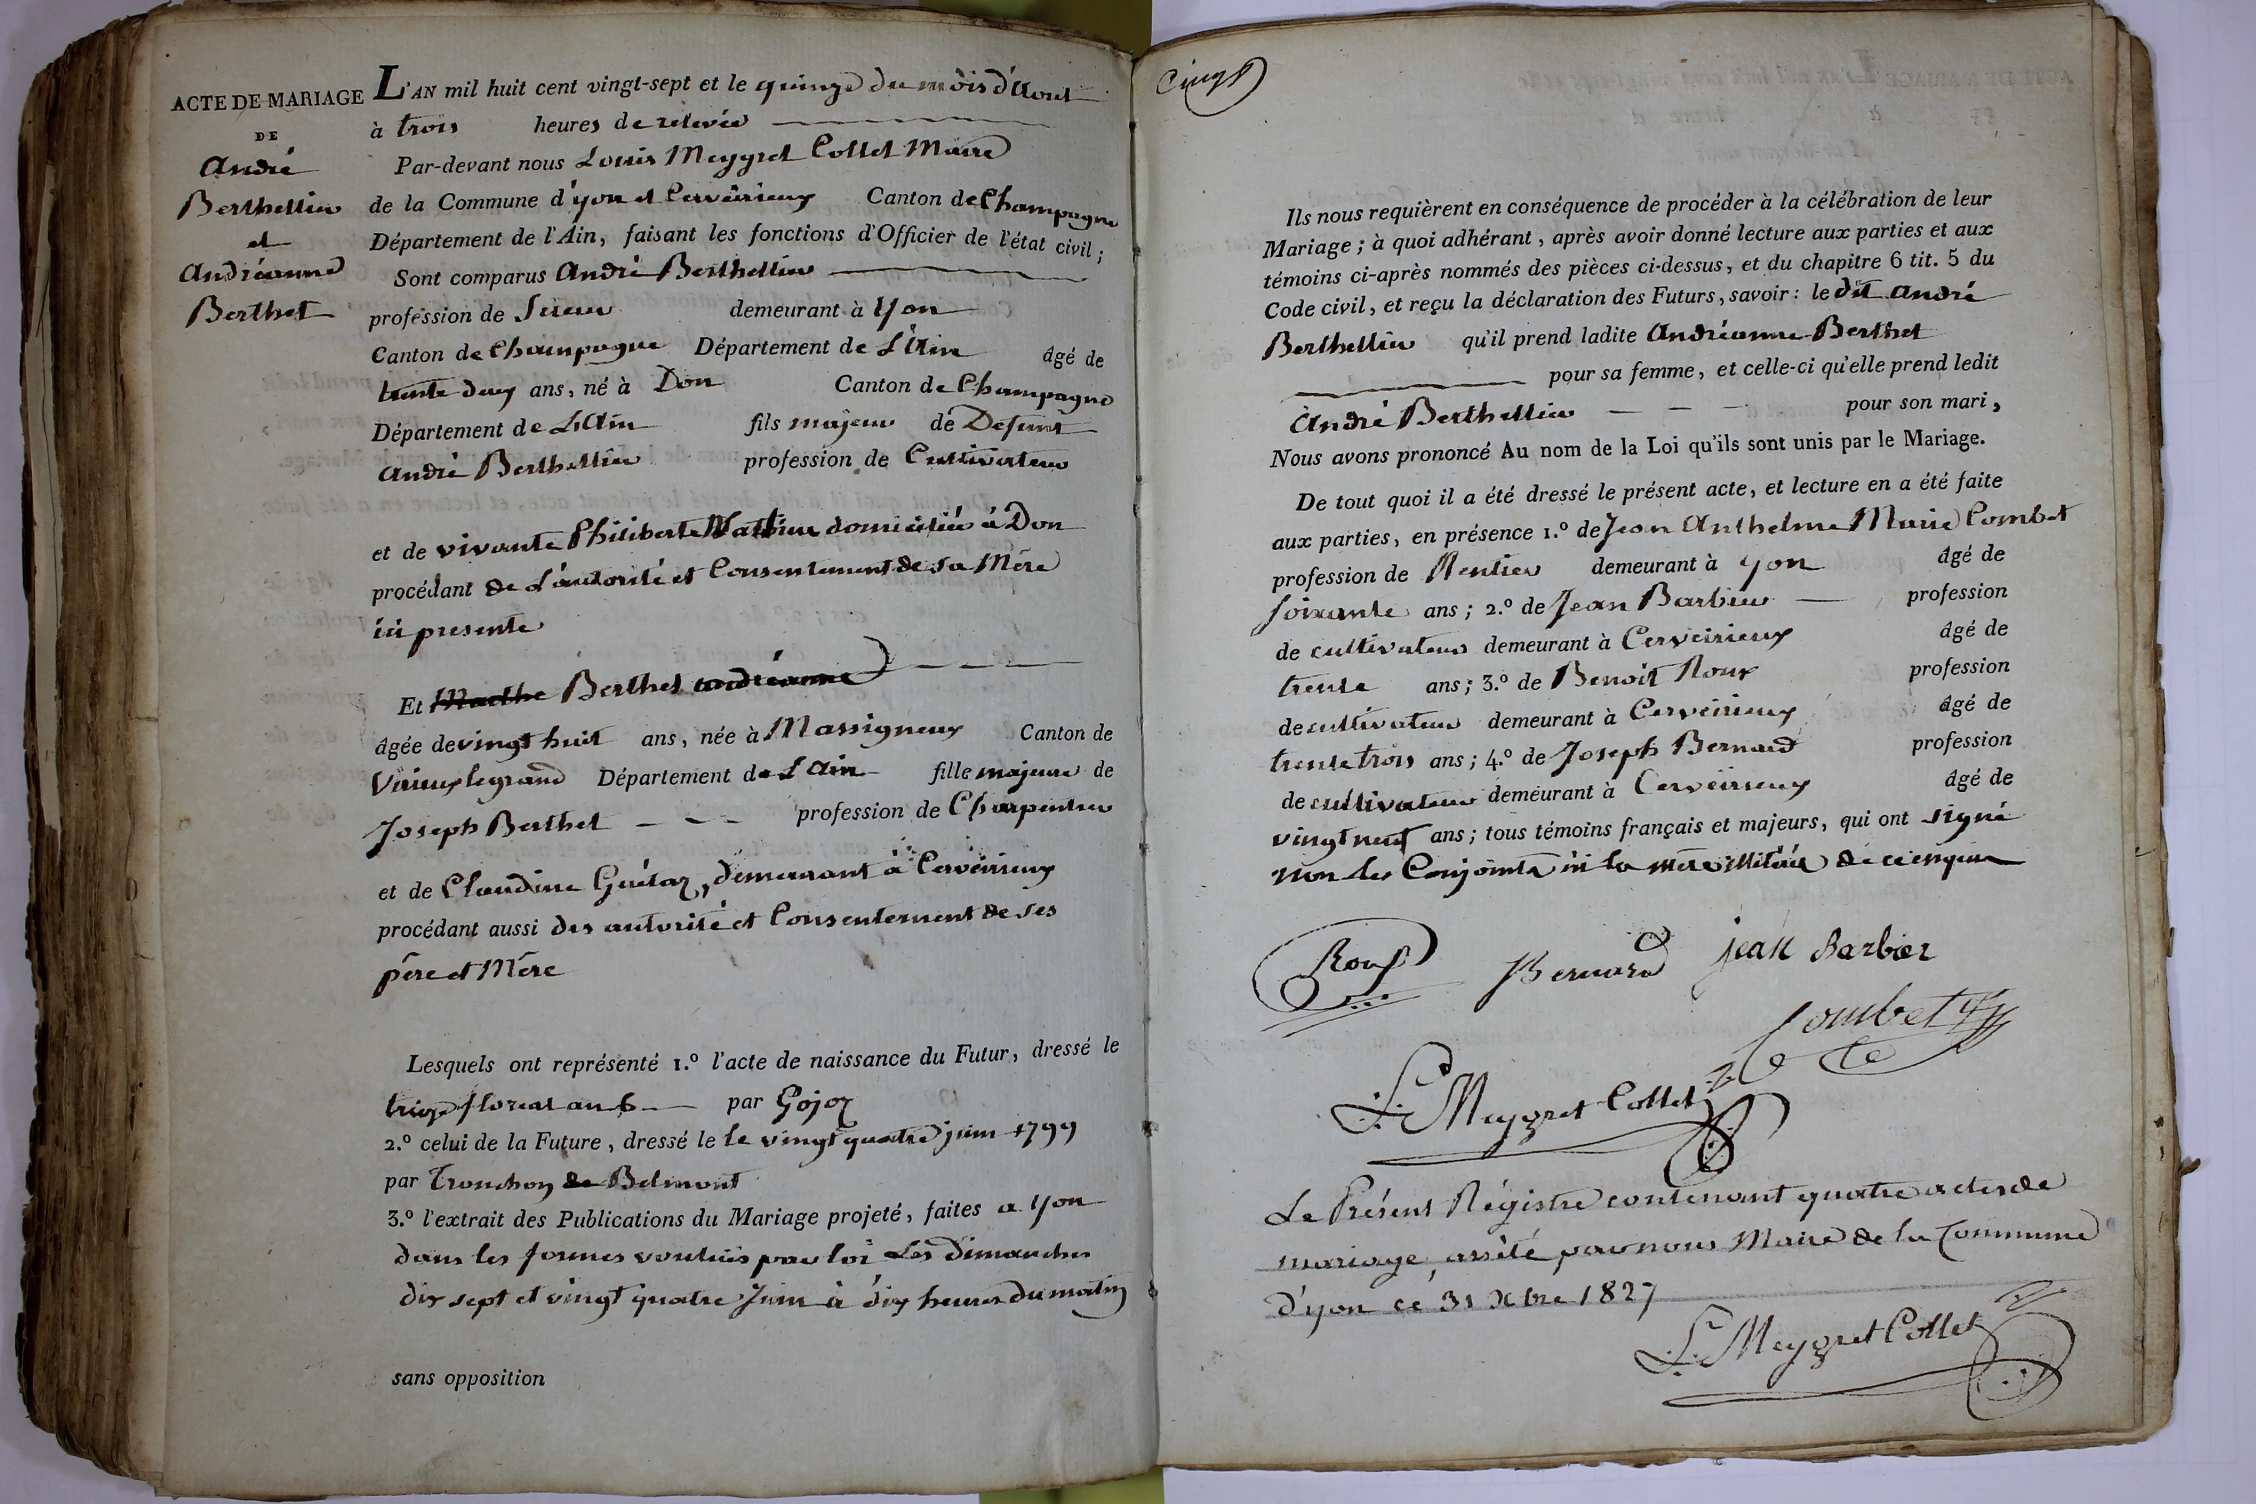 ACTE DE MARIAGE
DE
André
Berthellin
et
Andréanne
Berthet
L'AN mil huit cent vingt-sept et le quinze du mois d'Aout
à trois heures de relevée
Par-devant nous Louis Meygret Collet Maire
de la Commune d'yon et Cerveirieux Canton de Champagne
Département de l'Ain, faisant les fonctions d'Officier de l'état civil ;
Sont comparus André Berthellin
profession de demeurant à yon
Canton de Champagne Département de L'Ain âgé de
trente deux ans, né à Don Canton de Champagne
Département de L'Ain fils majeur de Defunt
André Berthellin profession de Cultivateur
et de vivante Philiberte domiciliée à Don
procédant de L'autorité et Consentement de sa Mère
ici presente
Et Marthe Berthet andréanne
âgée de vingt huit ans, née à Massigneux Canton de
Virieux legrand Département de L'Ain fille majeure de
Joseph Berthet profession de Charpentier
et de Claudine Guélaz, demeurant à Cerveirieux
procédant aussi des autorité et Consentement de ses
père et Mère
Lesquels ont représenté 1.º l'acte de naissance du Futur, dressé le
treize floreal an par Gojoz
2.º celui de la Future, dressé le le vingt quatre juin 1799
par Tronchon de Belmont
3.º l'extrait des Publications du Mariage projeté, faites a yon
dans les formes voulues par loi Les Dimanches
dix sept et vingt quatre Juin à dix heures du matin
sans opposition
Cinq
Ils nous requièrent en conséquence de procéder à la célébration de leur
Mariage ; à quoi adhérant, après avoir donné lecture aux parties et aux
témoins ci-après nommés des pièces ci-dessus, et du chapitre 6 tit. 5 du
Code civil, et reçu la déclaration des Futurs, savoir : le dit André
Berthellin qu'il prend ladite Andréanne Berthet
pour sa femme, et celle-ci qu'elle prend ledit
André Berthellin pour son mari,
Nous avons prononcé Au nom de la Loi qu'ils sont unis par le Mariage.
De tout quoi il a été dressé le présent acte, et lecture en a été faite
aux parties, en présence 1.º de Jean Anthelme Marie Combet
profession de Rentier demeurant à yon âgé de
soixante ans ; 2.º de Jean Barbier profession
de cultivateur demeurant à Cerveirieux âgé de
trente ans ; 3.º de Benoit Roux profession
de cultivateur demeurant à Cerveirieux âgé de
trente trois ans ; 4.º de Joseph Bernard profession
de cultivateur demeurant à Cerveirieux âgé de
vingt neuf ans ; tous témoins français et majeurs, qui ont signé
non les Conjoints ni la mère illitérée de ce enquis
Roux
Bernard
jean Barbier
Combet
L. Meygret Collet
Le Présent Régistre contenant quatre actes de
mariage, arrêté par nous Maire de la Commune
d'yon ce 31 Xbre 1827
L. Meygret Collet